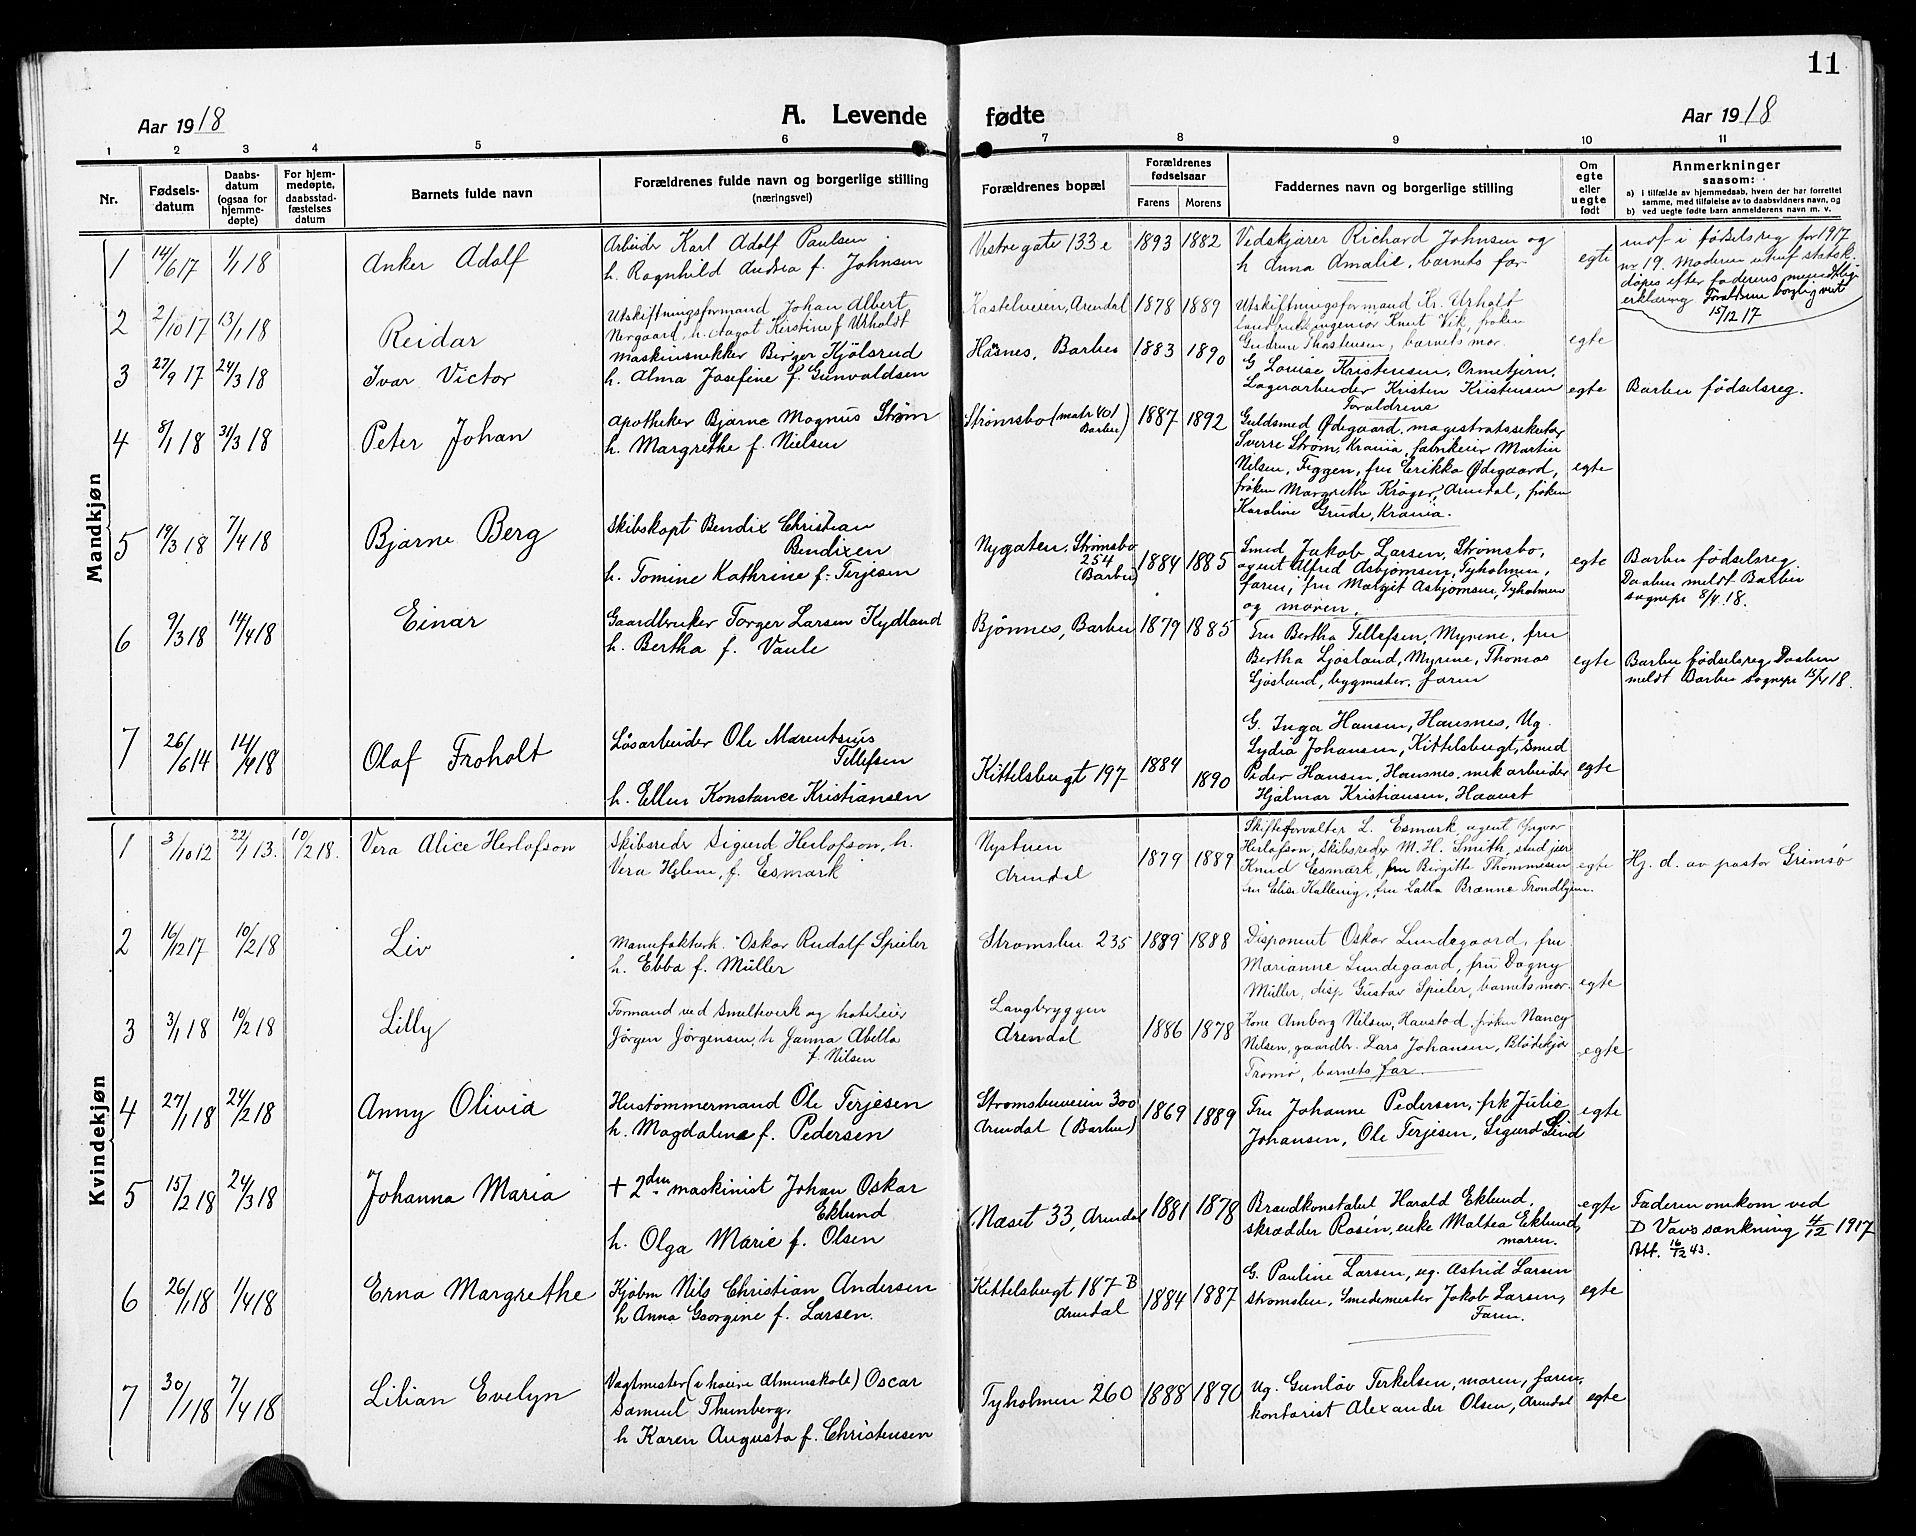 11
Aar 1918 A. Levende fødte Aar 1918
1 2 3 4 5 6 7 8 9 10 11
Nr.
Fødsels-
datum
Daabs-
datum
(ogsaa for
hjemme-
døpte)
For hjem-
medøpte,
daabsstad-
fæstelses
datum
Barnets fulde navn
Forældrenes fulde navn og borgerlige stilling
(næringsvei)
Forældrenes bopæl
Forældrenes
fødselsaar
Farens Morens
Faddernes navn og borgerlige stilling
Om
egte
eller
uegte
født
Anmerkninger
saasom:
a) i tilfælde av hjemmedaab, hvem der har forrettet
samme, med tilføielse av to daabsvidners navn, og
b) ved uegte fødte barn anmelderens navn m. v.
Mandkjøn
1 14/6 17 1/1 18 Anker Adolf
Arbeider Karl Adolf Paulsen
h. Ragnhild Andrea f. Johnsen
Vestregate 133 e 1893 1882
Vedskjærer Richard Johnsen og
h Anna Amalie, barnets far
egte
indf i fødselsreg for 1917
nr 19. Moderen utmf statsk.
døpes efter faderens mundtlig
erklæring Forældrene borglig viet
15/12 17
2 2/10 17 13/1 18 Reidar
Utskiftningsformand Johan Albert
Norgaard, h. Aagot Kirstine f Urholdt
Kastelveien, Arendal 1878 1889
Utskiftningsformand Kr. Urholt
ingeniør Knut Vik, frøken
Gudrun Thorstensen, barnets mor.
egte
3 27/9 17 24/3 18 Ivar Victor
Maskinsnekker Birger Kjølsrud
h. Alma Josefine f. Gunvaldsen
Hasnes, Barbu 1883 1890
G Louise Kristensen, Ormetjern,
Lagerarbeider Kristen Kristensen
Forældrene
egte
Barbu fødselsreg.
4 8/1 18 31/3 18 Peter Johan
Apotheker Bjarne Magnus Strøm
h. Margrethe f. Nielsen
Strømsbo (matr 401
Barbu) 1887 1892
Guldsmed Ødegaard, magistratssekretær
Sverre Strøm, Krania, fabrikeier Martin
Nilsen, Tiggen, fru Erikka Ødegaard,
frøken Margrethe Krøger, Arendal, frøken
Karoline Grude, Krania.
egte
5 19/3 18 7/4 18 Bjarne Berg
Skibskapt Bendix Christian
Bendixen
h. Tomine Kathrine f. Terjesen
Nygaten, Strømsbo
254
(Barbu) 1884 1885
Smed Jakob Larsen, Strømsbo,
agent Alfred Asbjørnsen, Tyholmen,
faren, fru Margit Asbjørnsen, Tyholmen
og moren.
egte
Barbu fødselsreg.
Daaben meldt Barbu
sognepr 8/4 18.
6 9/3 18 14/4 18 Einar
Gaardbruker Torger Larsen Kydland
h. Bertha f. Vaule
Bjønnes, Barbu 1879 1885
Fru Bertha Tellefsen, Myrene, fru
Bertha Ljosland, Myrene, Thomas
Ljosland, bygmester, faren
egte
Barbu fødselsreg Daaben
meldt Barbu sognepr 15/4 18.
7 26/6 14 14/4 18 Olaf Froholt
Løsarbeider Ole Marentsius
Tellefsen
h. Ellen Konstance Kristiansen
Kittelsbugt 197 1884 1890
G. Inga Hansen, Hausnes, Ug.
Lydia Johansen, Kittelsbugt, smed
Peder Hansen, Hausnes, mek arbeider
Hjalmar Kristiansen, Haavet
egte
Kvindekjøn
1 3/10 12 22/1 13. 10/2 18. Vera Alice Herlofson
Skibsreder Sigurd Herlofson, h.
Vera Helene, f. Esmark
Nystuen
Arendal 1879 1889
Skifteforvalter L. Esmark, agent Yngvar
Herlofson, Skibsreder M. H. Smith, stud jur
Knud Esmark, fru Birgitte Thommesen
fru Elise Kallevig, fru Lalla Brænne Trondhjem.
egte
Hj. d. av pastor Grimsø
2 16/12 17 10/2 18 Liv
Manufakturh. Oskar Rudolf Spieler
h. Ebba f. Müller
Strømsbu 235 1889 1888
Disponent Oskar Lundegaard, fru
Marianne Lundegaard, fru Dagny
Müller, disp Gustav Spieler, barnets mor.
egte
3 3/1 18 10/2 18 Lilly
Formand ved Smelteverk og hoteleier
Jørgen Jørgensen, h Janna Abella
f. Nilsen
Langbryggen
Arendal 1886 1878
Kone Amborg Nilsen, Haustad, frøken Nancy
Nilsen, gaardbr. Lars Johansen, Blødekjær
Tromø, barnets far.
egte
4 27/1 18 24/2 18 Anny Olivia
Hustømmermand Ole Terjesen
h. Magdalene f. Pedersen
Strømsbuveien 300
Arendal (Barbu) 1869 1889
Fru Johanne Pedersen, frk Julie
Johansen, Ole Terjesen, Sigurd Lind
egte
5 15/2 18 24/3 18 Johanna Maria
+ 2den maskinist Johan Oskar
Eklund
h. Olga Marie f. Olsen
Næset 33, Arendal 1881 1878
Brandkonstabel Harald Eklund,
skrædder Rosen, enke Maltea Eklund,
moren.
egte
Faderen omkom ved
D Vavs sænkning 4/12 1917
Att. 16/12 43.
6 26/1 18 1/4 18 Erna Margrethe
Kjøbm Nils Christian Andersen
h Anna Georgine f. Larsen.
Kittelsbugt 187 B
Arendal 1884 1887
G. Pauline Larsen, ug. Astrid Larsen
Strømsbu, Smedemester Jakob Larsen,
Faren.
egte
7 30/1 18 7/4 18 Lilian Evelyn
Vagtmester (v høiere Almenskole) Oscar
Samuel Thunberg,
h Karen Augusta f. Christensen
Tyholmen 260 1888 1890
Ug. Gunløv Terkelsen, moren, faren,
kontorist Alexander Olsen, Arendal
egte